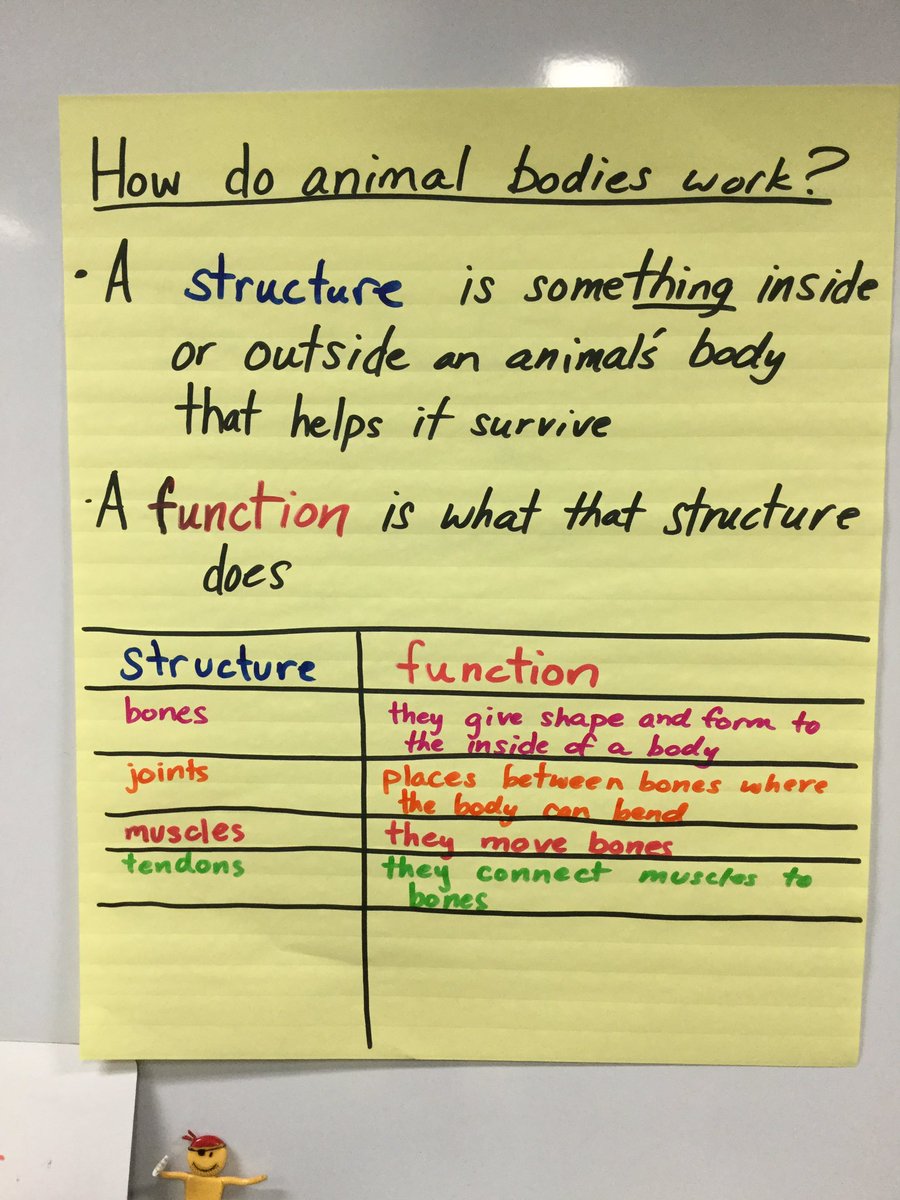 How do animal bodies work?
· A structure is something inside
or outside an animal's body
that helps it survive
· A function is what that structure
does
structure function
bones they give shape and form to
the inside of a body
joints places between bones where
the body can bend
muscles they move bones
tendons they connect muscles to
bones